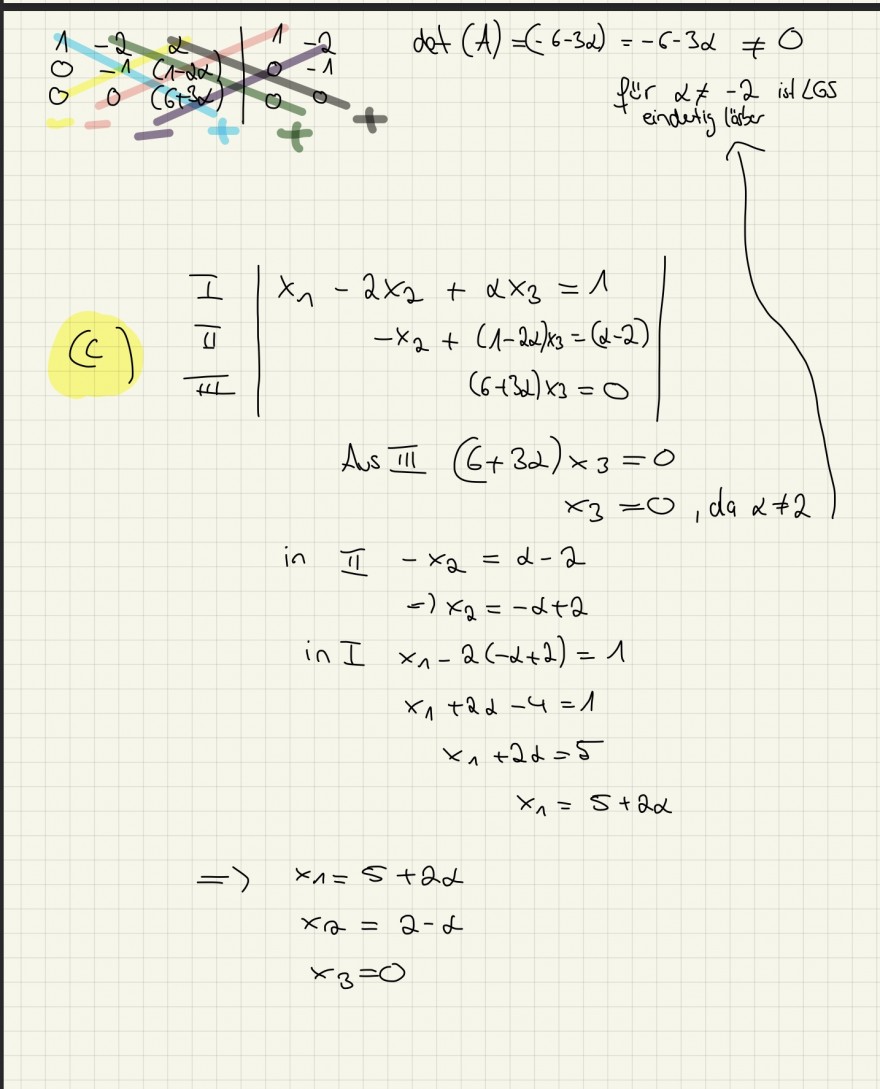 1 -2 α | 1 -2
0 -1 (1-2α) | 0 -1
0 0 (6+3α) | 0 0
- - - + + +
det (A) = (-6-3α) = -6-3α ≠ 0
für α ≠ -2 ist LGS
eindeutig lösbar
(c)
I | x1 - 2x2 + αx3 = 1 |
II | -x2 + (1-2α)x3 = (α-2) |
III | (6+3α)x3 = 0 |
Aus III (6+3α)x3 = 0
x3 = 0, da α≠2
in II -x2 = α-2
=) x2 = -α+2
in I x1 - 2(-α+2) = 1
x1 + 2α - 4 = 1
x1 + 2α = 5
x1 = 5 + 2α
=> x1 = 5 + 2α
x2 = 2-α
x3 = 0